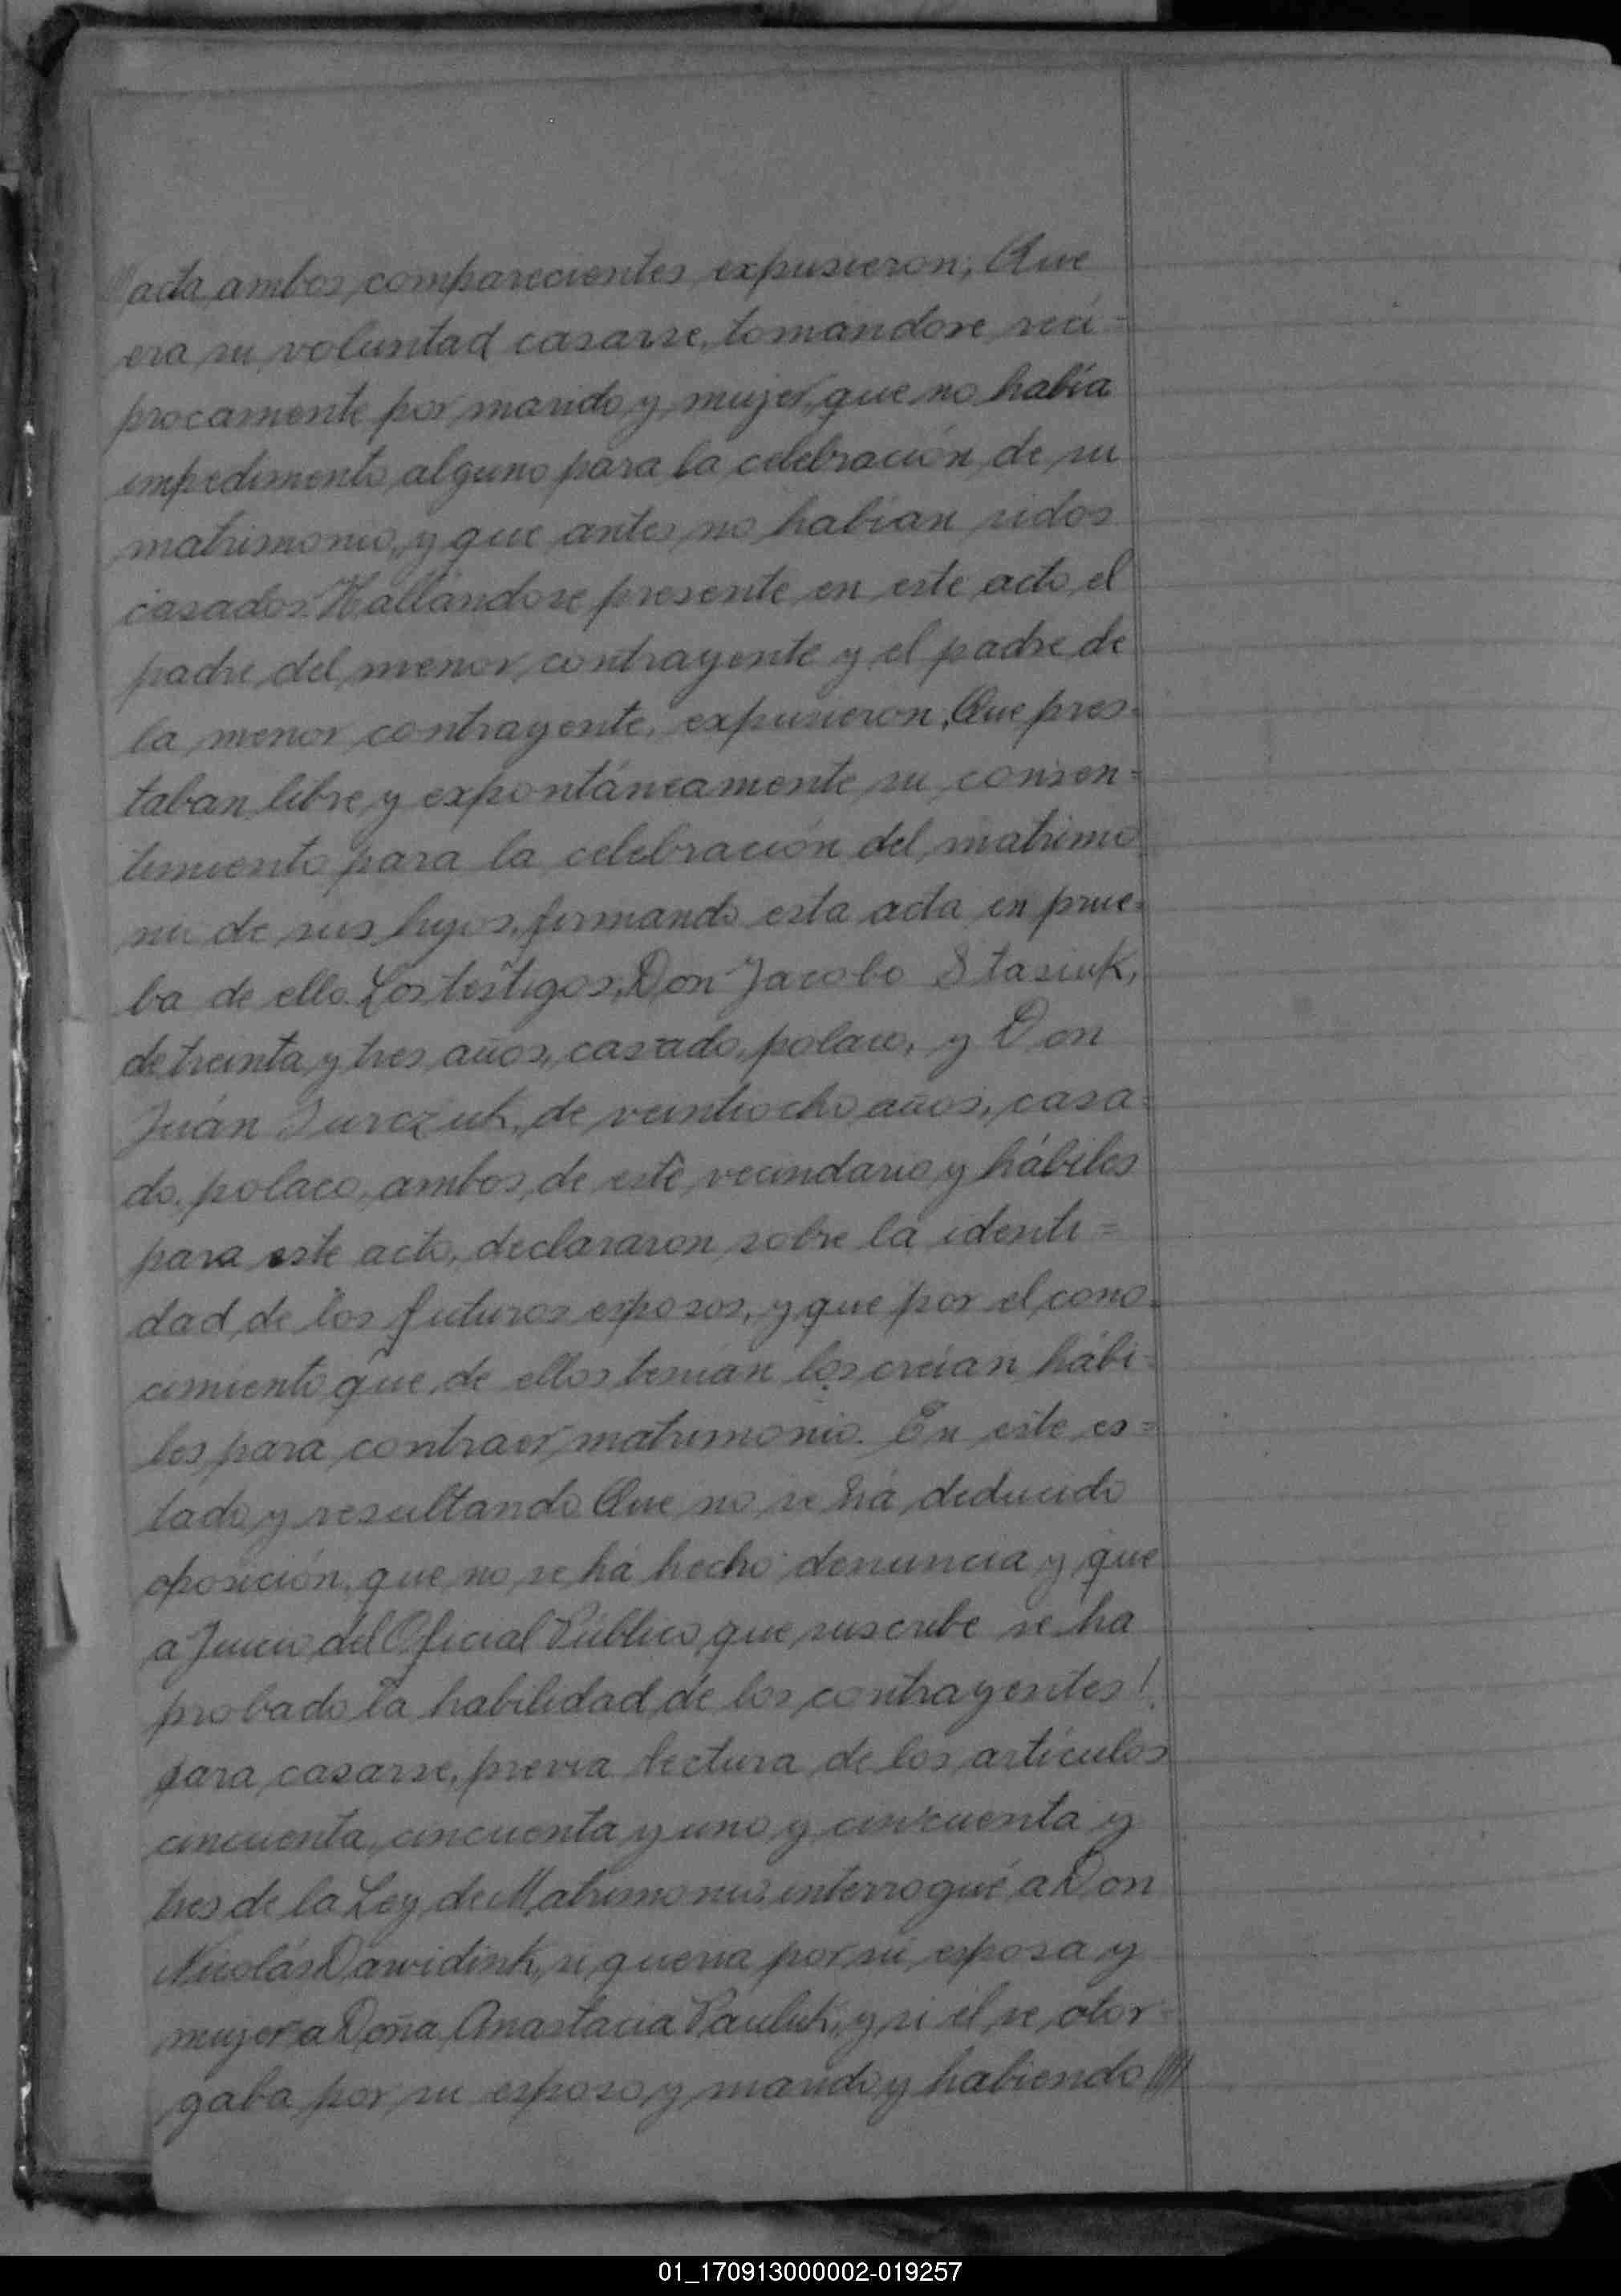 acta, ambos, comparecientes, expusieron; Que
era su voluntad casarse, tomandose reci=
procamente por marido y mujer, que no había
impedimento alguno para la celebración de su
matrimonio, y que antes no habían sidos
casados. Hallándose presente en este acto, el
padre del menor contrayente y el padre de
la menor contrayente, expusieron, Que pres-
taban libre y expontáneamente su consen=
timiento para la celebración del matrimo
nio de sus hijos, firmando esta acta en prue-
ba de ello. Los testigos, Don Jacobo Stasiuk,
de treinta y tres años, casado, polaco, y Don
Juán Jurczuk, de veintiocho años, casa=
do, polaco, ambos, de este vecindario y hábiles
para este acto, declararon sobre la identi=
dad de los futuros esposos, y que por el cono-
cimiento que de ellos tenían los creían hábi=
les para contraer matrimonio. En este es=
tado y resultando Que no se há deducido
oposición, que no se há hecho denuncia y que
a Juicio del Oficial Público que suscribe se ha
probado la habilidad de los contrayentes!
para casarse, previa lectura de los artículos
cincuenta, cincuenta y uno y cincuenta y
tres de la Ley de Matrimonio, interrogué a Don
Nicolás Dawidiuk, si queria por su esposa y
mujer a Doña Anastacia Pauluk, y si él se otor=
gaba por su esposo y marido y habiendo ////
01_170913000002-019257